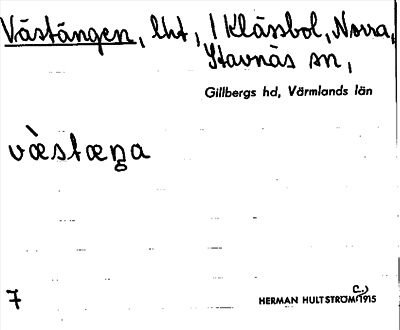 Västängen, lht, i Klässbol, Norra,
Stavnäs sn,
Gillbergs hd, Värmlands län
væ̀stæŋa
7
(c.)
HERMAN HULTSTRÖM 1915